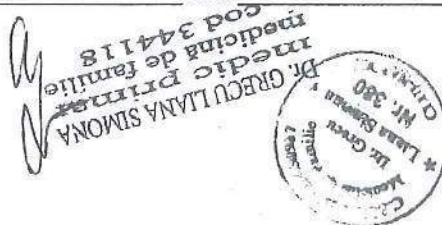 Dr. GRECU LIANA SIMONA
medic primar
medicină de familie
cod 344118
Dr. Grecu
Liana Simona
Nr. 380